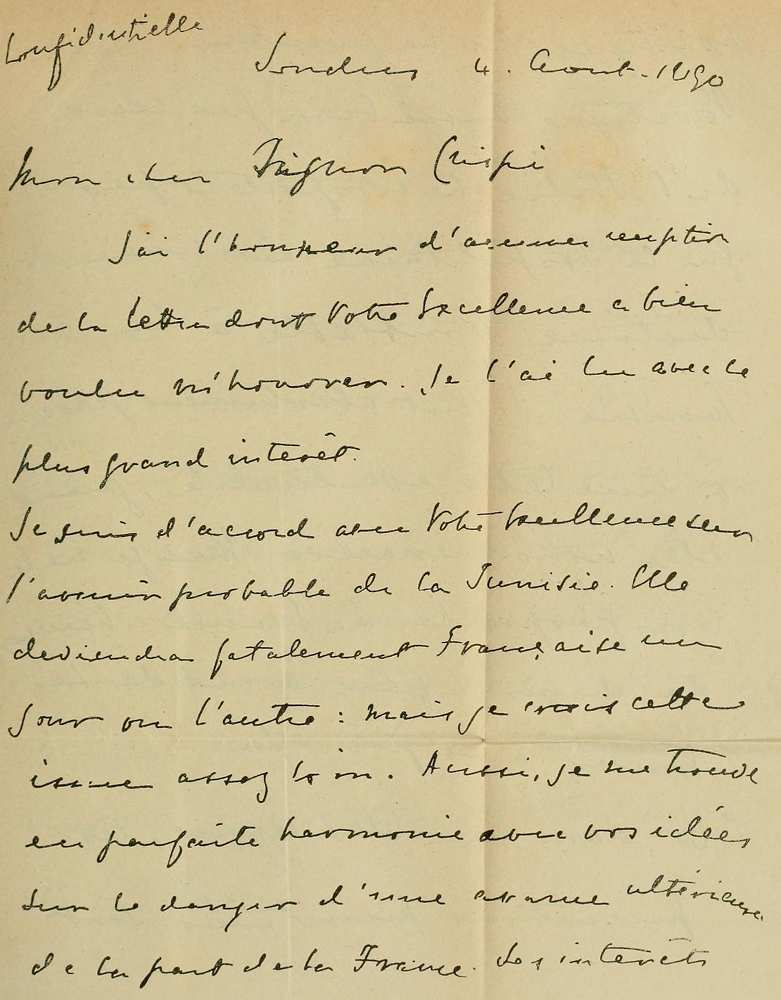 Confidentielle
Londres 4. Aout. 1890
Mon cher Signor Crispi
J'ai l'honneur d'accuser reception
de la lettre dont Votre Excellence a bien
voulu m'honorer. Je l'ai lu avec le
plus grand interêt.
Je suis d'accord avec Votre Excellence sur
l'avenir probable de la Tunisie. Elle
deviendra fatalement Française un
jour ou l'autre: mais je crois cette
issue assez loin. Aussi, je me trouve
en parfaite harmonie avec vos idées
sur le danger d'une avance ultérieure
de la part de la France. Les interêts